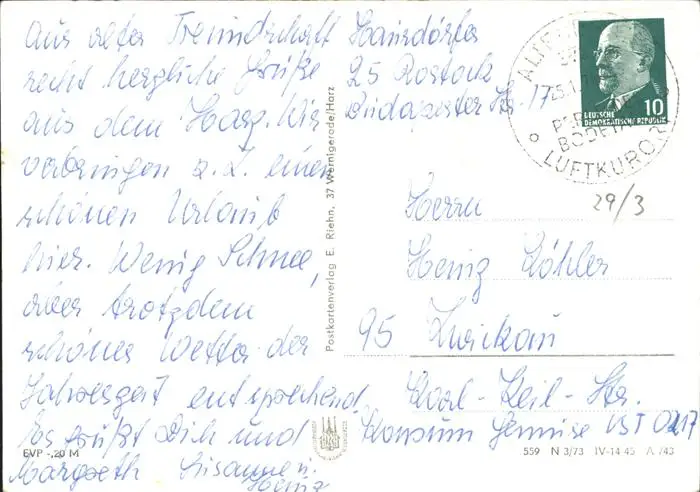 Aus alter Freundschaft
recht herzliche Grüße
aus dem Harz. Wir
verbringen z. Z. einen
schönen Urlaub
hier. Wenig Schnee,
aber trotzdem
schönes Wetter der
Jahreszeit entsprechend.
Es grüßt Dich und
Margreth Susanne u.
Heinz
Hausdörfer
25 Rostock
Budapester Str. 17
Postkartenverlag E. Riehn, 37 Wernigerode/Harz
LUFTKURORT
DEUTSCHE
DEMOKRATISCHE REPUBLIK
10
29/3
Herrn
Heinz Köhler
95 Zwickau
Karl-Keil-Str.
Konsum Gemüse VST 0217
EVP -,20 M
559 N 3/73 IV-14 45 A /43